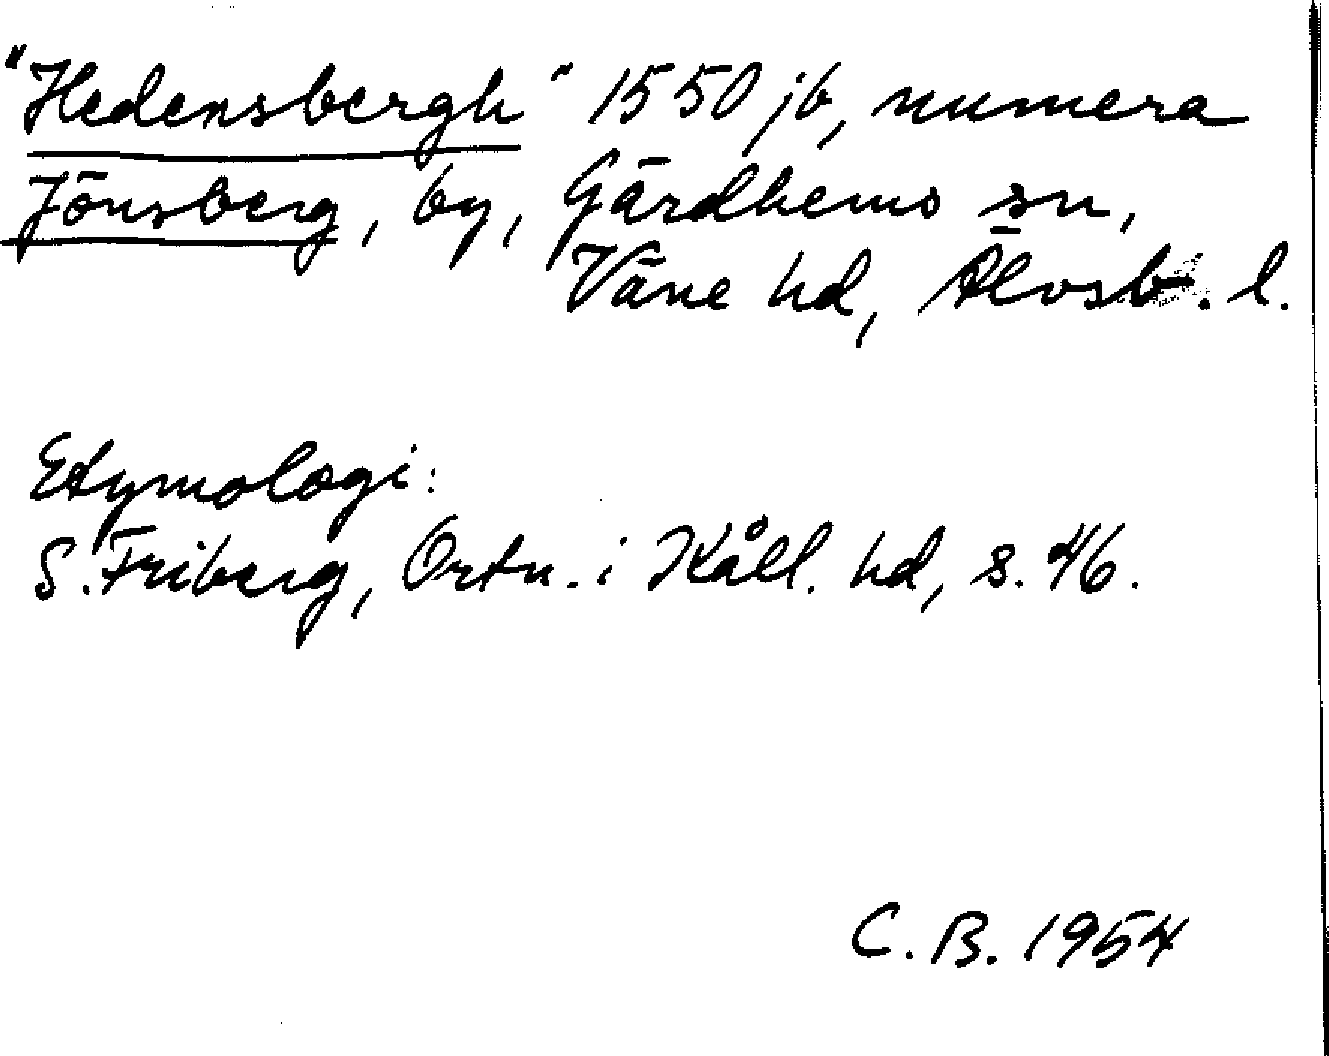 "Hedensbergh" 1550 jb, numera
Jönsberg, by, Gärdhems sn,
Väne hd, Älvsb. l.
Etymologi:
S. Friberg, Ortn. i Kåll. hd, s. 46.
C. B. 1954